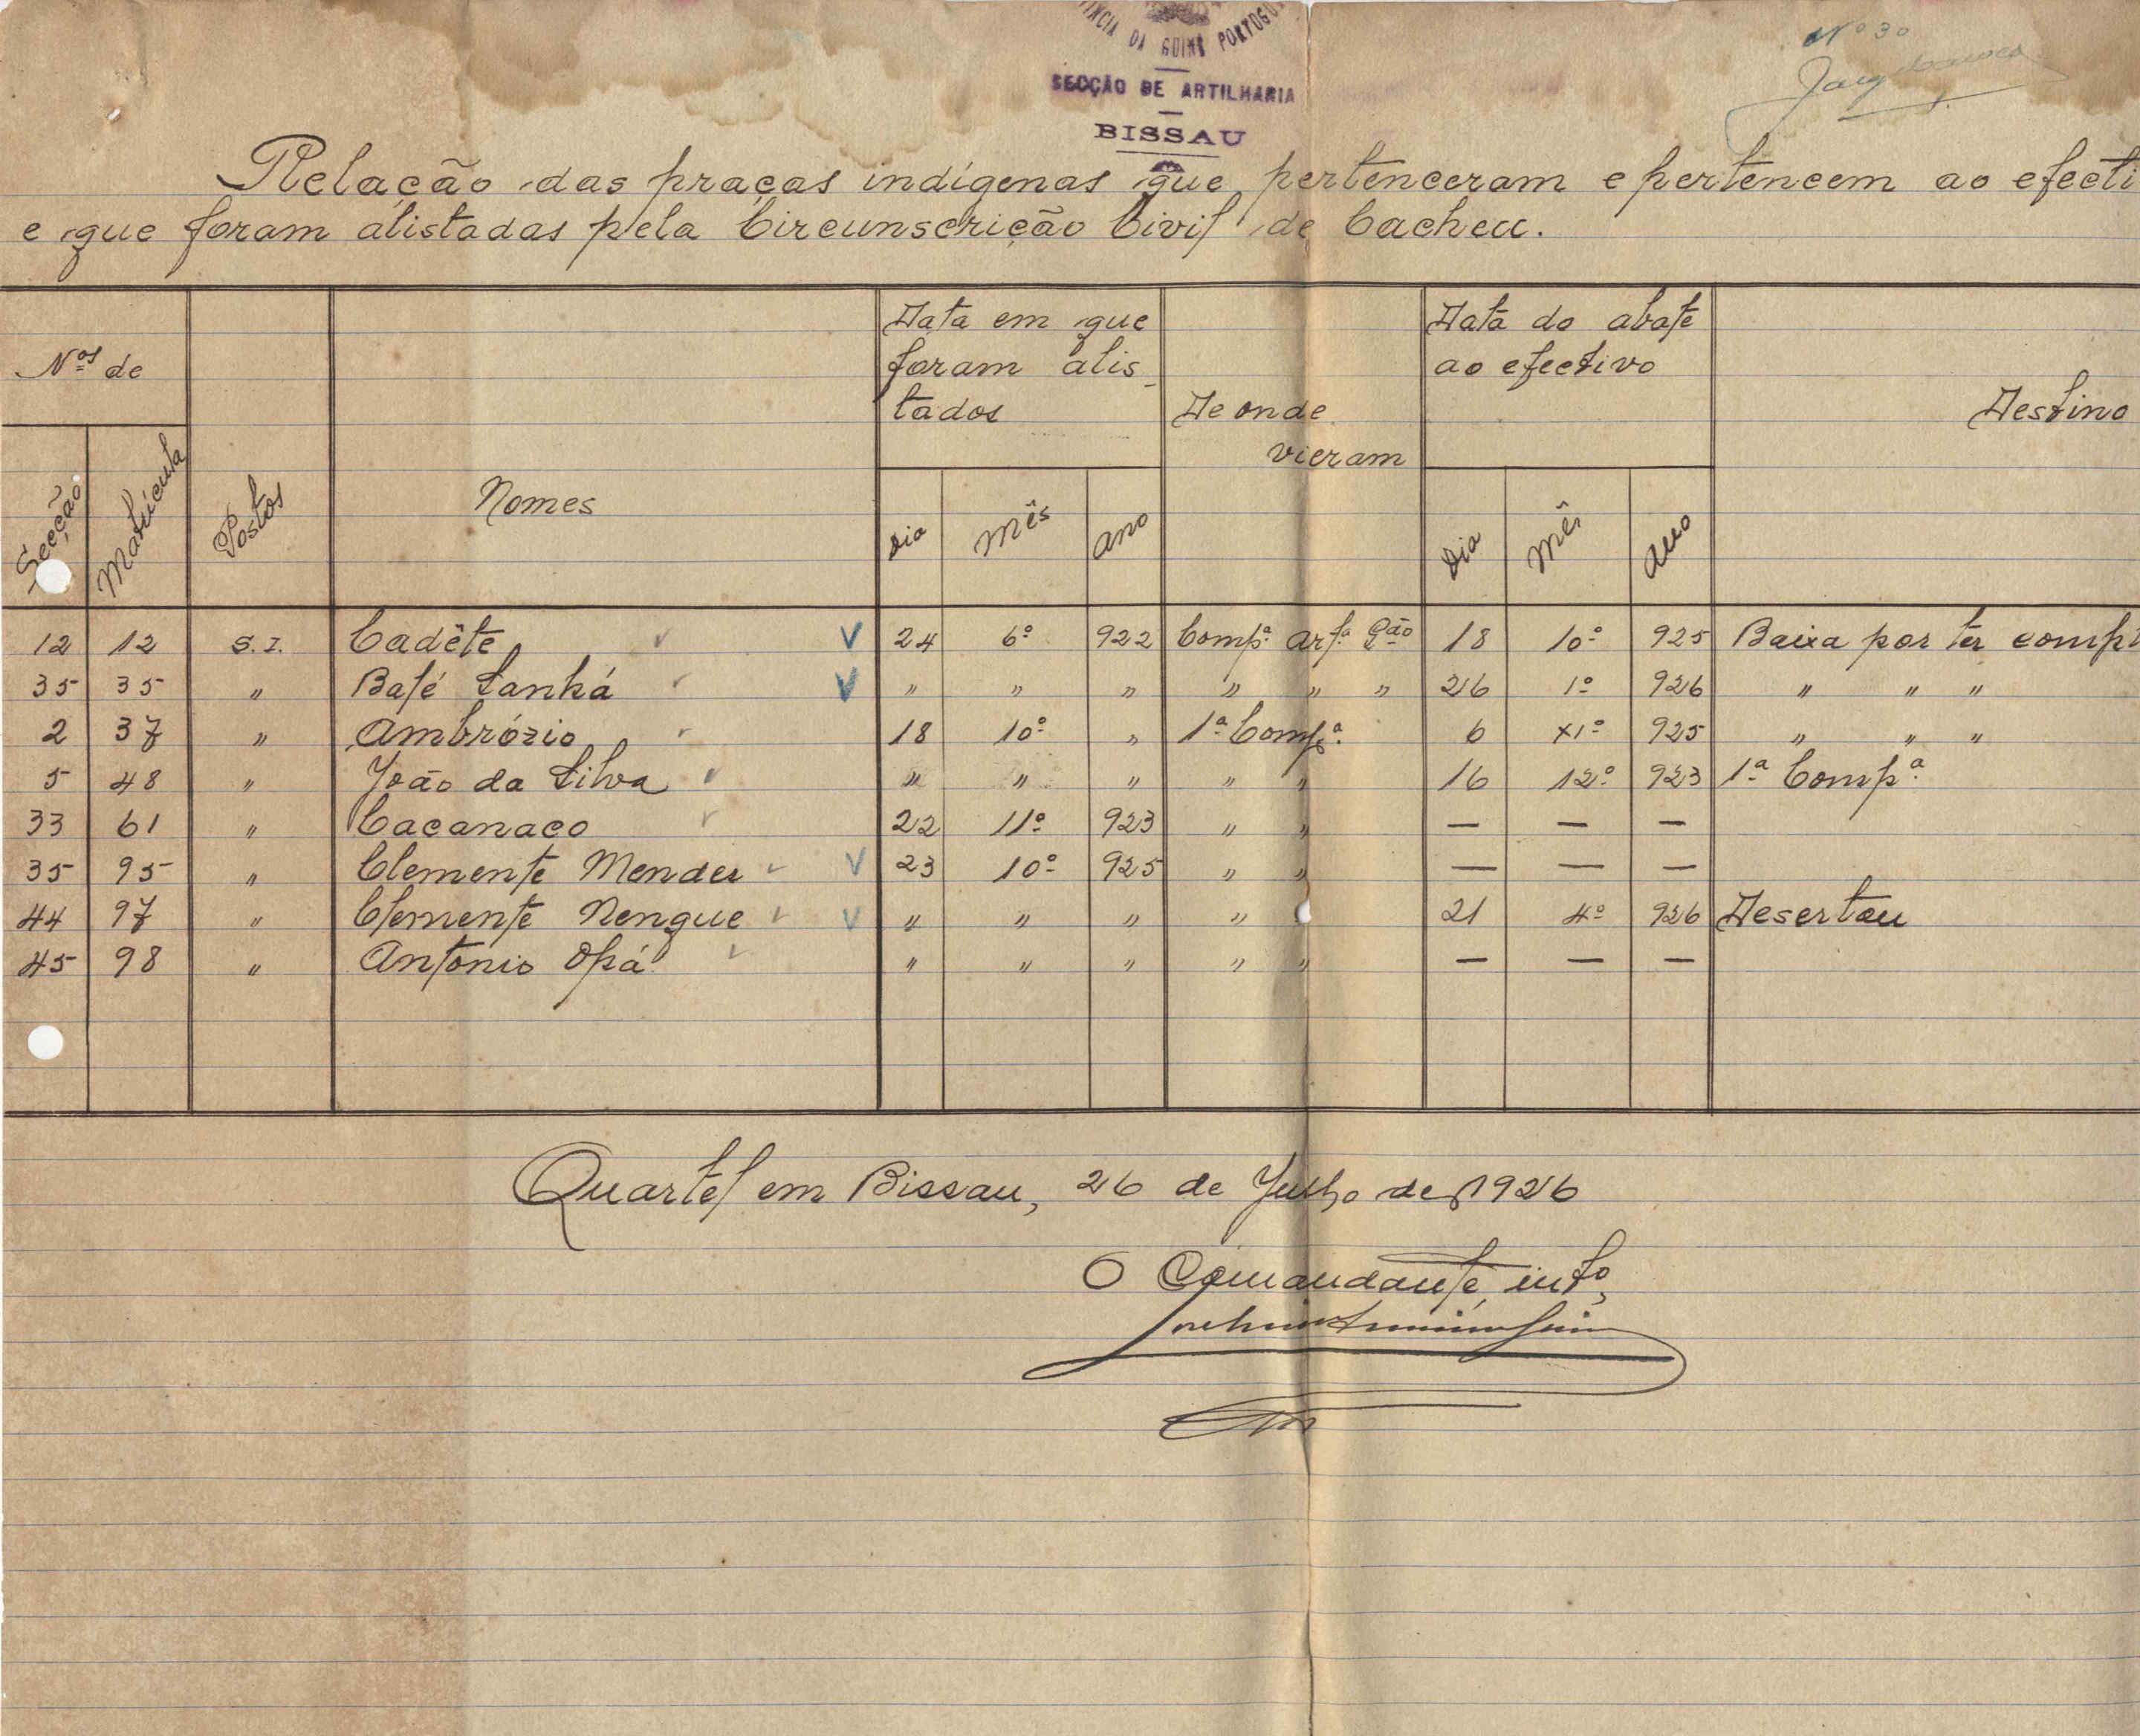 DA GUINÉ PORTUGU
SECÇÃO DE ARTILHARIA
BISSAU
Nº 30
Relação das praças indígenas que pertenceram e pertencem ao efecti
e que foram alistadas pela Circunscrição Civil de Cacheu.
Nos de
Secção
Matrícula
Postos
Nomes
Data em que
foram alis-
tados
dia mês ano
De onde
vieram
Data do abate
ao efectivo
Dia Mês Ano
Destino
12 12 S.I. Cadête 24 6º 922 Compª Artª Gão 18 10º 925 Baixa por ter compl
35 35 " Bafé Sanhá " " " " " " 26 1º 926 " " "
2 37 " Ambrózio 18 10º " 1ª Compª. 6 X1º 925 " " "
5 48 " João da Silva " " " " " 16 12º 923 1ª Compª.
33 61 " Caçanaço 22 11º 923 " " — — —
35 95 " Clemente Mendes 23 10º 925 " " — — —
44 97 " Clemente Nengue " " " " 21 4º 926 Desertou
45 98 " António Opá " " " " " — — —
Quartel em Bissau, 26 de Julho de 1926
O Comandante, intº,